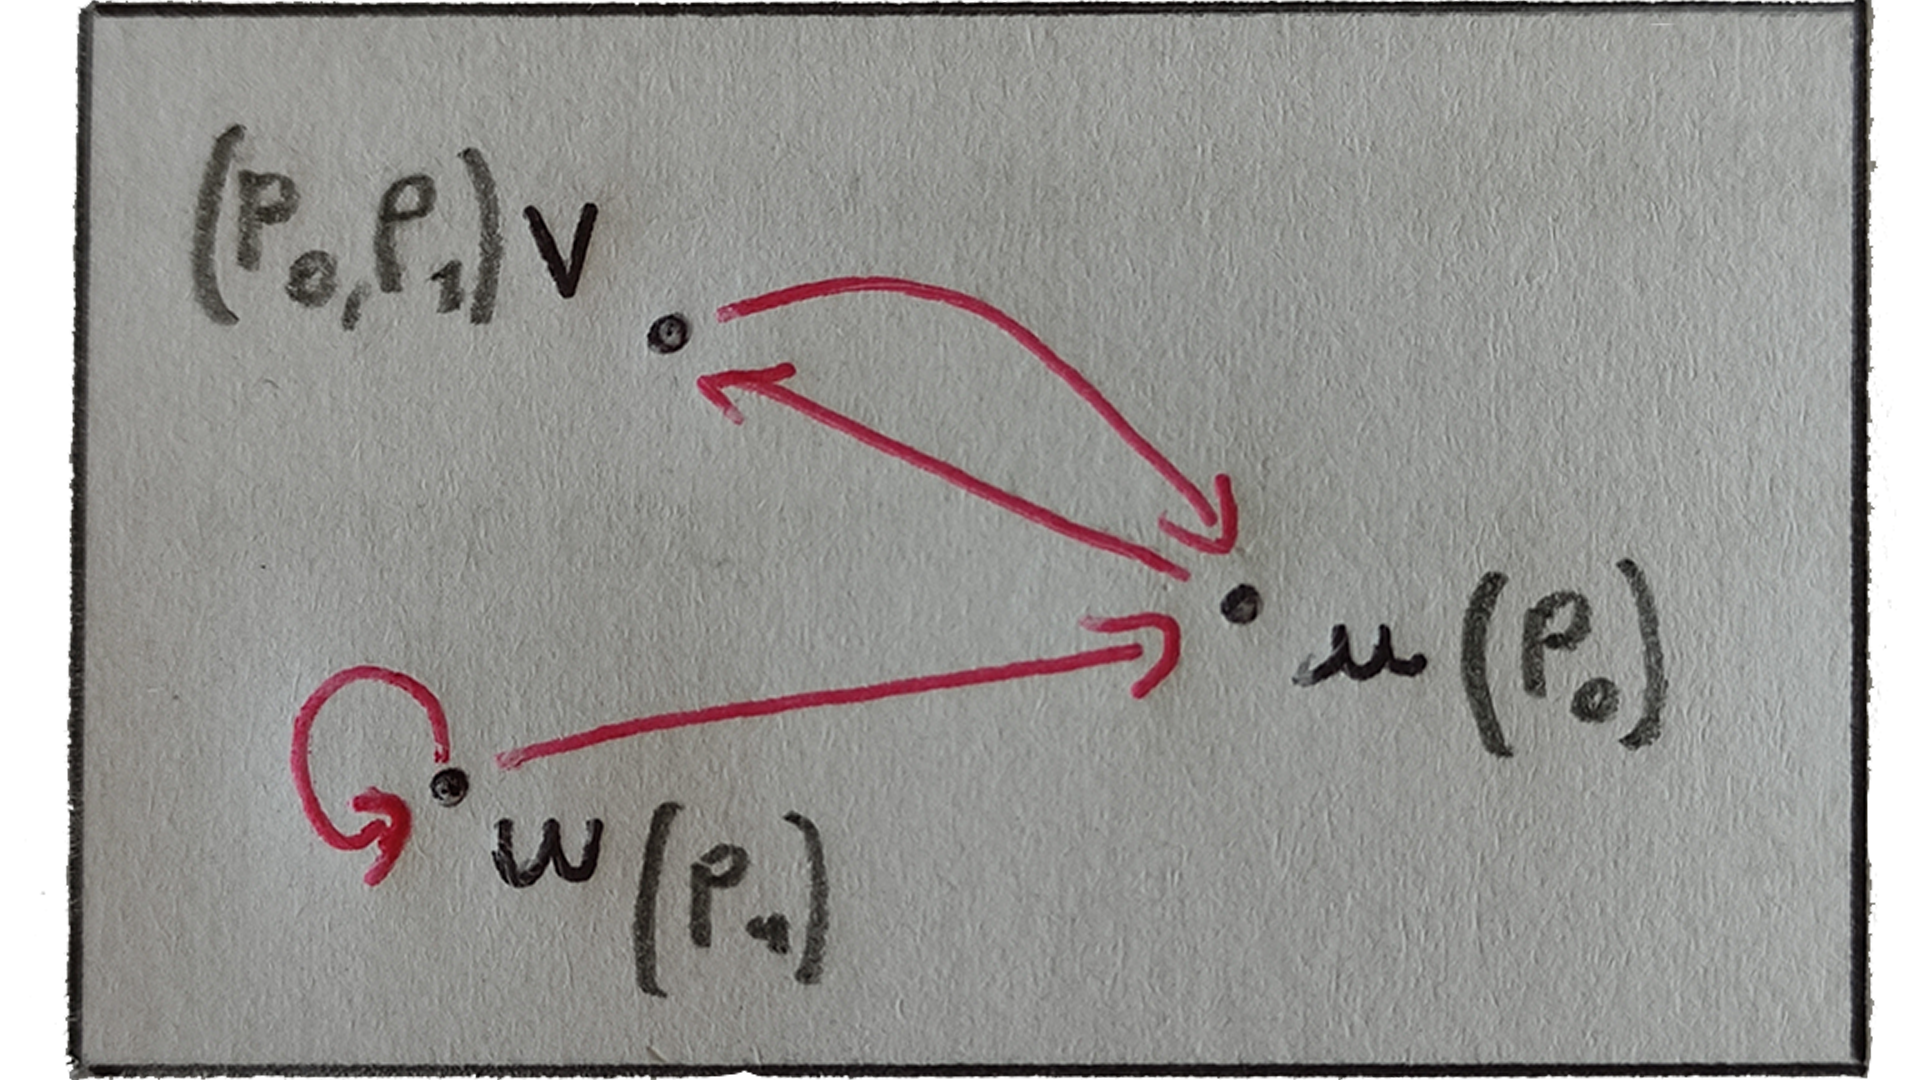 (P₀, P₁) V
u (P₀)
w (P₁)